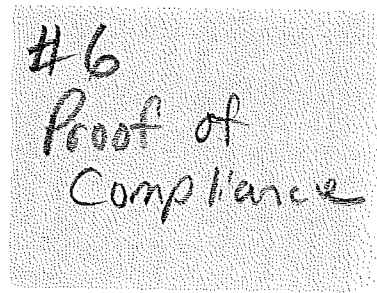 #6
Proof of
Compliance